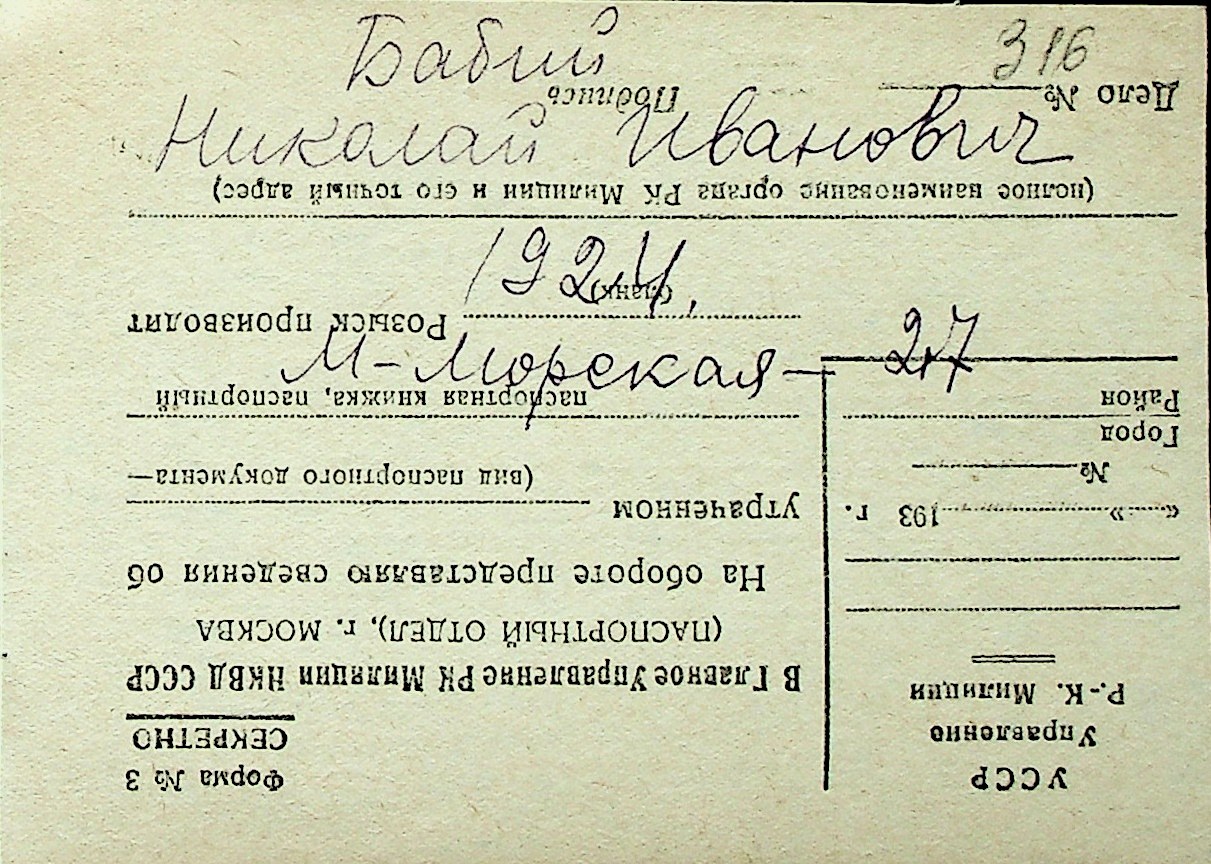 Бабий
316
Николай Иванович
1924.
М-Морская — 27
УССР
Управление
Р.-К. Милиции
« » 193 г.
№
Город
Район
Форма № 3
СЕКРЕТНО
В Главное Управление РК Милиции НКВД СССР
(ПАСПОРТНЫЙ ОТДЕЛ), г. МОСКВА
На обороте представляю сведения об
утраченном
(вид паспортного документа—
паспортная книжка, паспортный
бланк)
Розыск производит
(полное наименование органа РК Милиции и его точный адрес)
Дело № Подпись